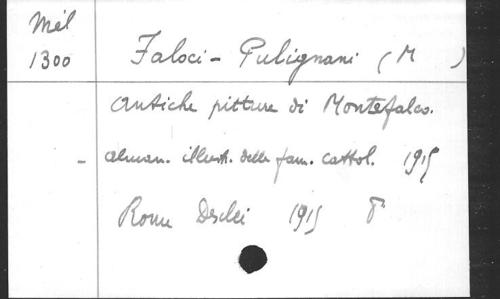 Mél
1300
Faloci - Pulignani (M )
Antiche pitture di Montefalco.
- alman. illust. delle fam. cattol. 1915
Rome Desclei 1915 8°